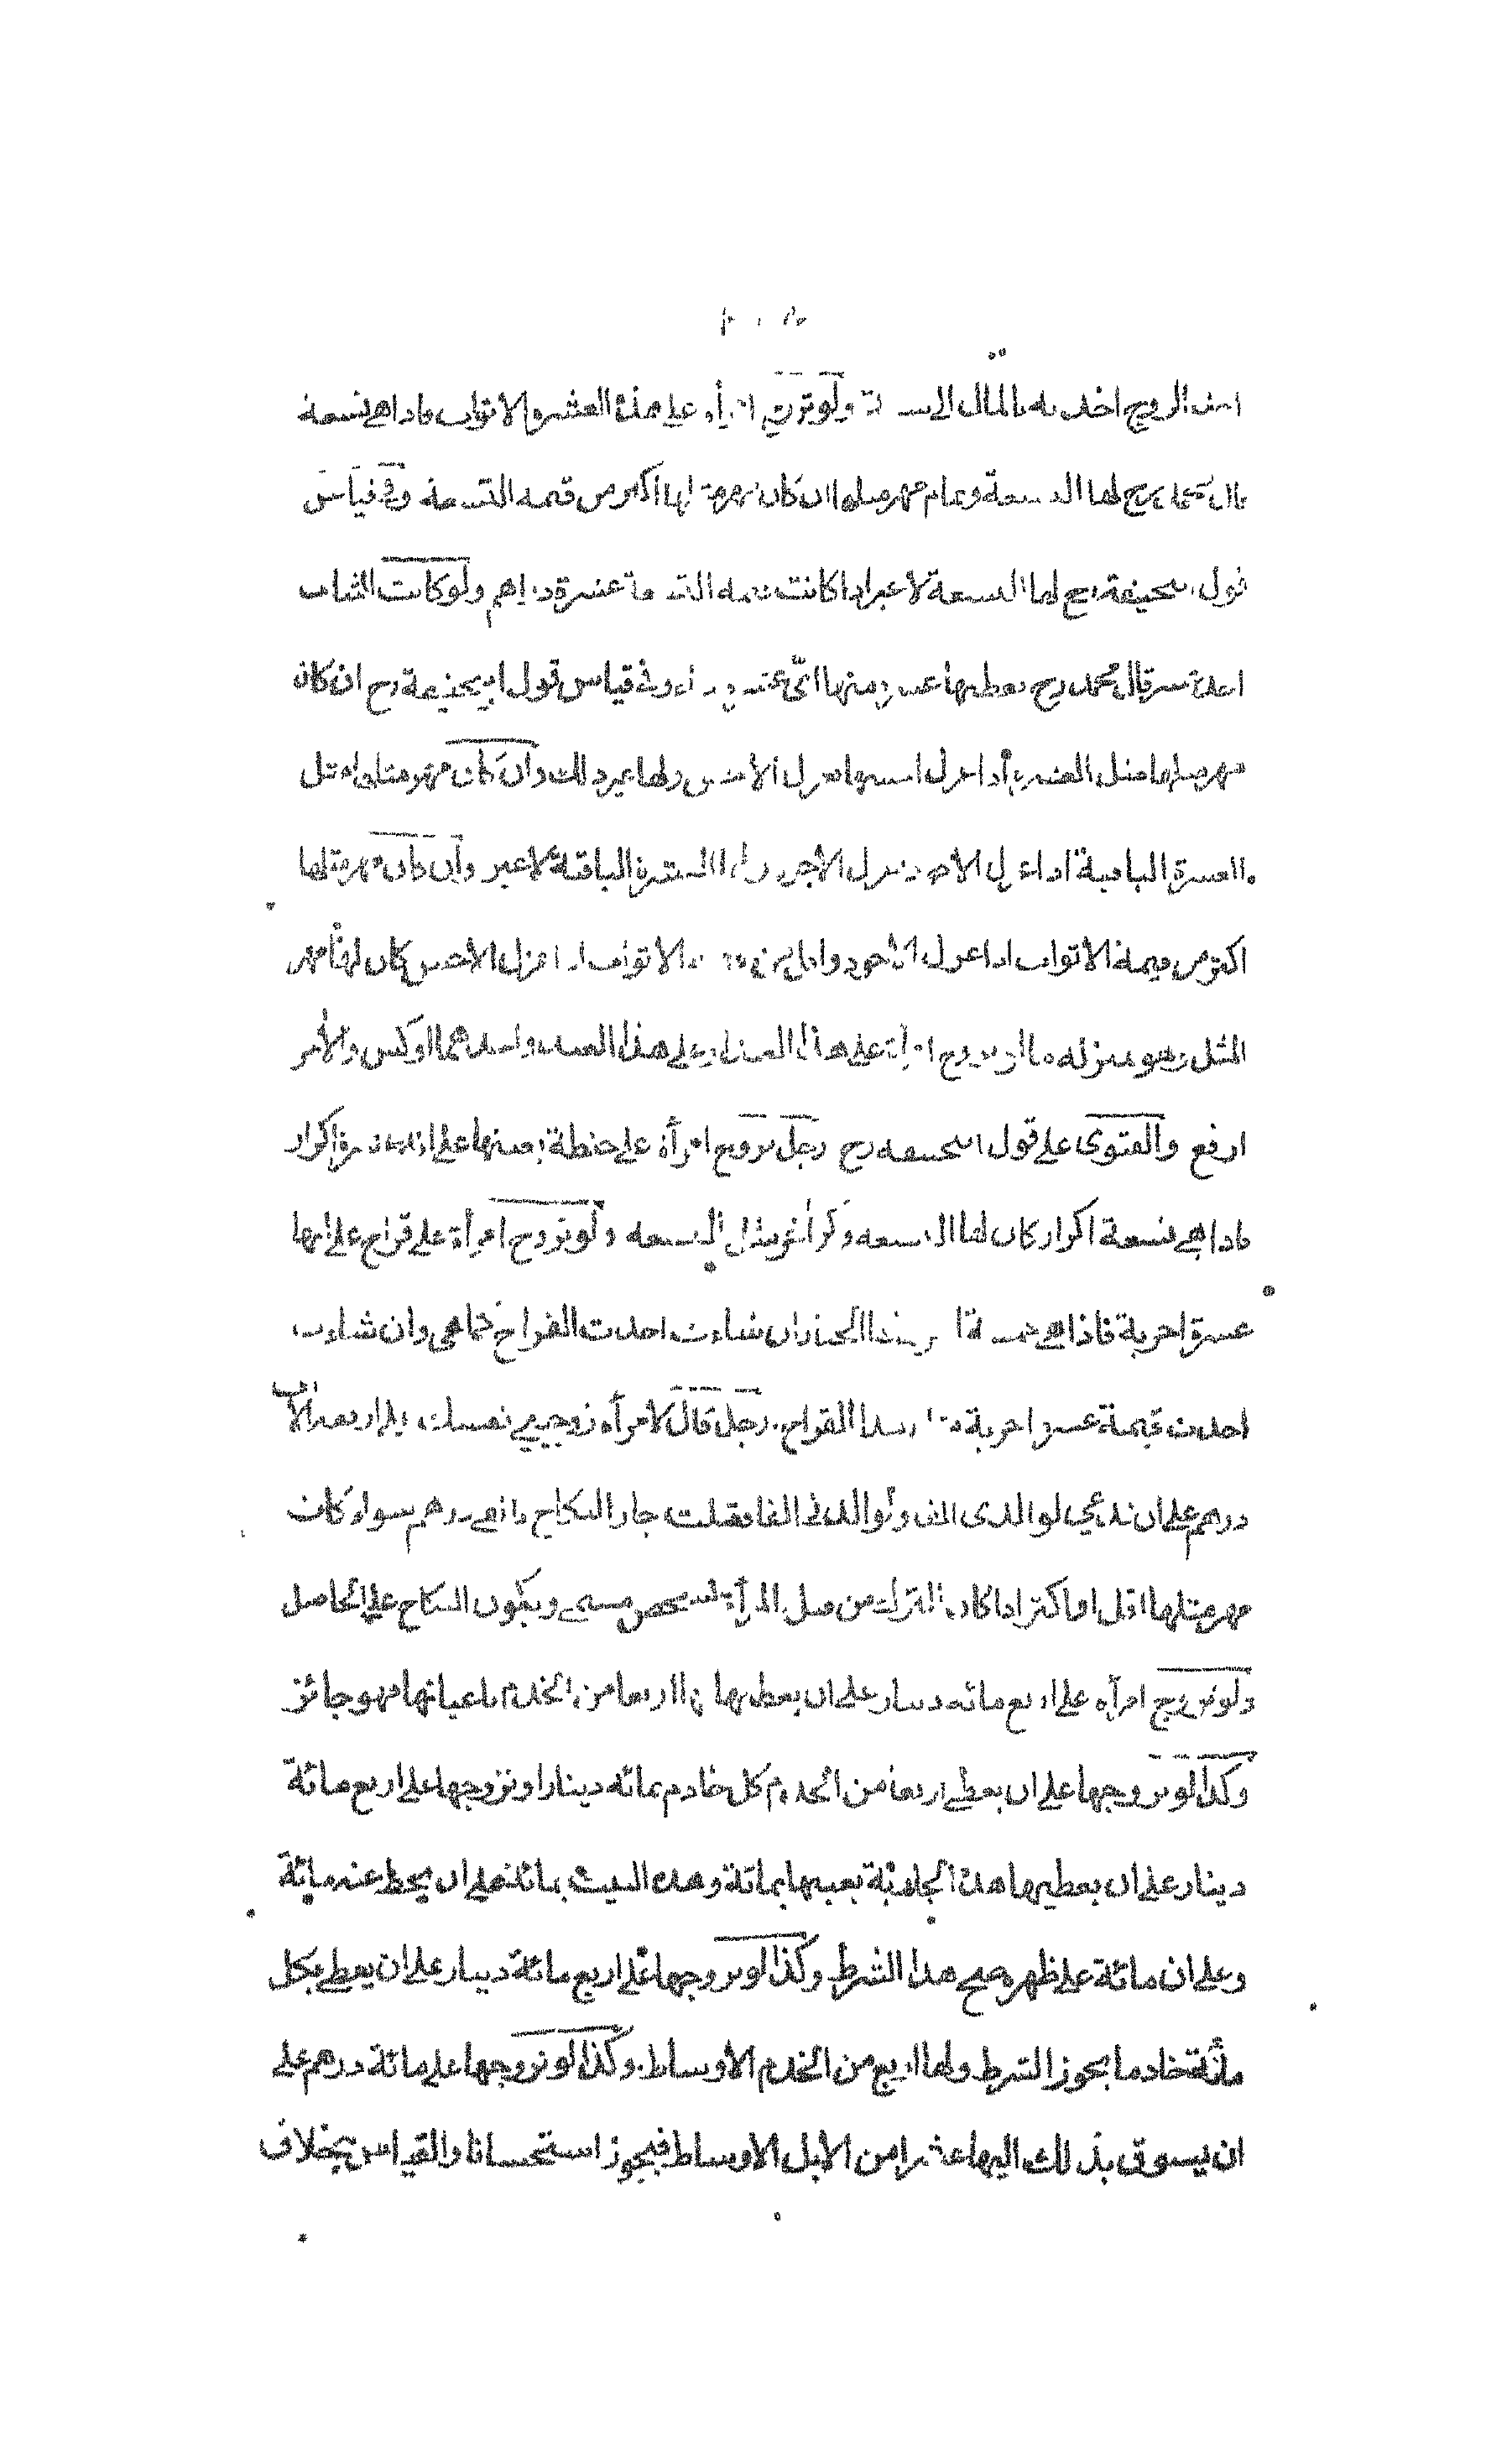 الزوج اخذ به بالمال الى ولو تزوج امرأة على هذه العشرة الاثواب فاذا هي تسعة
قال محمد رح لها التسعة وتمام مهر مثلها ان كان مهر مثلها أكثر من قيمة التسعة وفي قياس
قول ابيحنيفة رح لها التسعة لا غير اذا كانت قيمة التسعة عشرة دراهم ولو كانت الثياب
احد عشر قال محمد رح يعطيها عشرة منها اي عشرة شاء وفي قياس قول ابيحنيفة رح ان كان
مهر مثلها مثل العشرة اذا عزل اخسها يعزل الاخس ولها غير ذلك وان كان مهر مثلها مثل
العشرة الباقية اذا عزل الاجود يعزل الاجود ولها العشرة الباقية لا غير وان كان مهر مثلها
اكثر من قيمة الاثواب اذا عزل الاجود واقل من قيمة الاثواب اذا عزل الاخس كان لها مهر
المثل وهو بمنزلة ما لو تزوج امرأة على هذا العبد او على هذا العبد واحدهما اوكس والآخر
ارفع والفتوى على قول ابيحنيفة رح رجل تزوج امرأة على حنطة بعينها على انها عشرة اكرار
فاذا هي تسعة اكرار كان لها التسعة وكرا آخر مثل التسعة ولو تزوج امرأة على قراح على انها
عشرة اجربة فاذا هي خمسة الخيار ان شاءت اخذت القراح كما هي وان شاءت
اخذت قيمة عشرة اجربة هذا القراح. رجل قال لامرأة زوجيني نفسك على اربعة آلاف
درهم على ان تدعي لوالدي الفا ولوالدتي الفا فقبلت جاز النكاح بالفي درهم سواء كان
مهر مثلها اقل او اكثر اذا كان الترك من قبل المرأة لشخص مسمى ويكون النكاح على الحاصل
ولو تزوج امرأة على اربع مائة دينار على ان يعطيها اربعا من الخدم باعيانها فهو جائز
وكذا لو تزوجها على ان يعطي اربعا من الخدم كل خادم بمائة دينار او تزوجها على اربع مائة
دينار على ان يعطيها هذه الجارية بعينها بمائة وهذه البيت بمائة على ان يحط عنه مائة
وعلى ان مائة على ظهره صح هذا الشرط وكذا لو تزوجها على اربع مائة دينار على ان يعطي بكل
مائة خادما يجوز الشرط ولها اربع من الخدم الاوساط. وكذا لو تزوجها على مائة درهم على
ان يسوق بذلك اليها عشرا من الابل الاوساط فيجوز استحسانا والقياس بخلاف